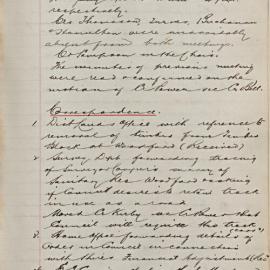 respectively.
Crs Thomason, Jurss, Buchanan
& Hamilton were unavoidably
absent from both meetings.
Cr Simpson in the Chair.
The minutes of previous meeting
were read & confirmed on the
motion of Cr Power sec Cr Bell.
Correspondence.
1. Dist Lands Office with reference to
removal of timber from
Block at Woodford (Received)
2 Survey Dept forwarding tracing
of Surveyor survey of
Sanitary Res Woodford asking
if Council desires to retain track
in use as a road
Moved Cr Kirby sec Cr that
Council will require this track
3 Home Office forwarding details of
Order in Council in connection
with Shires Financial Adjustment